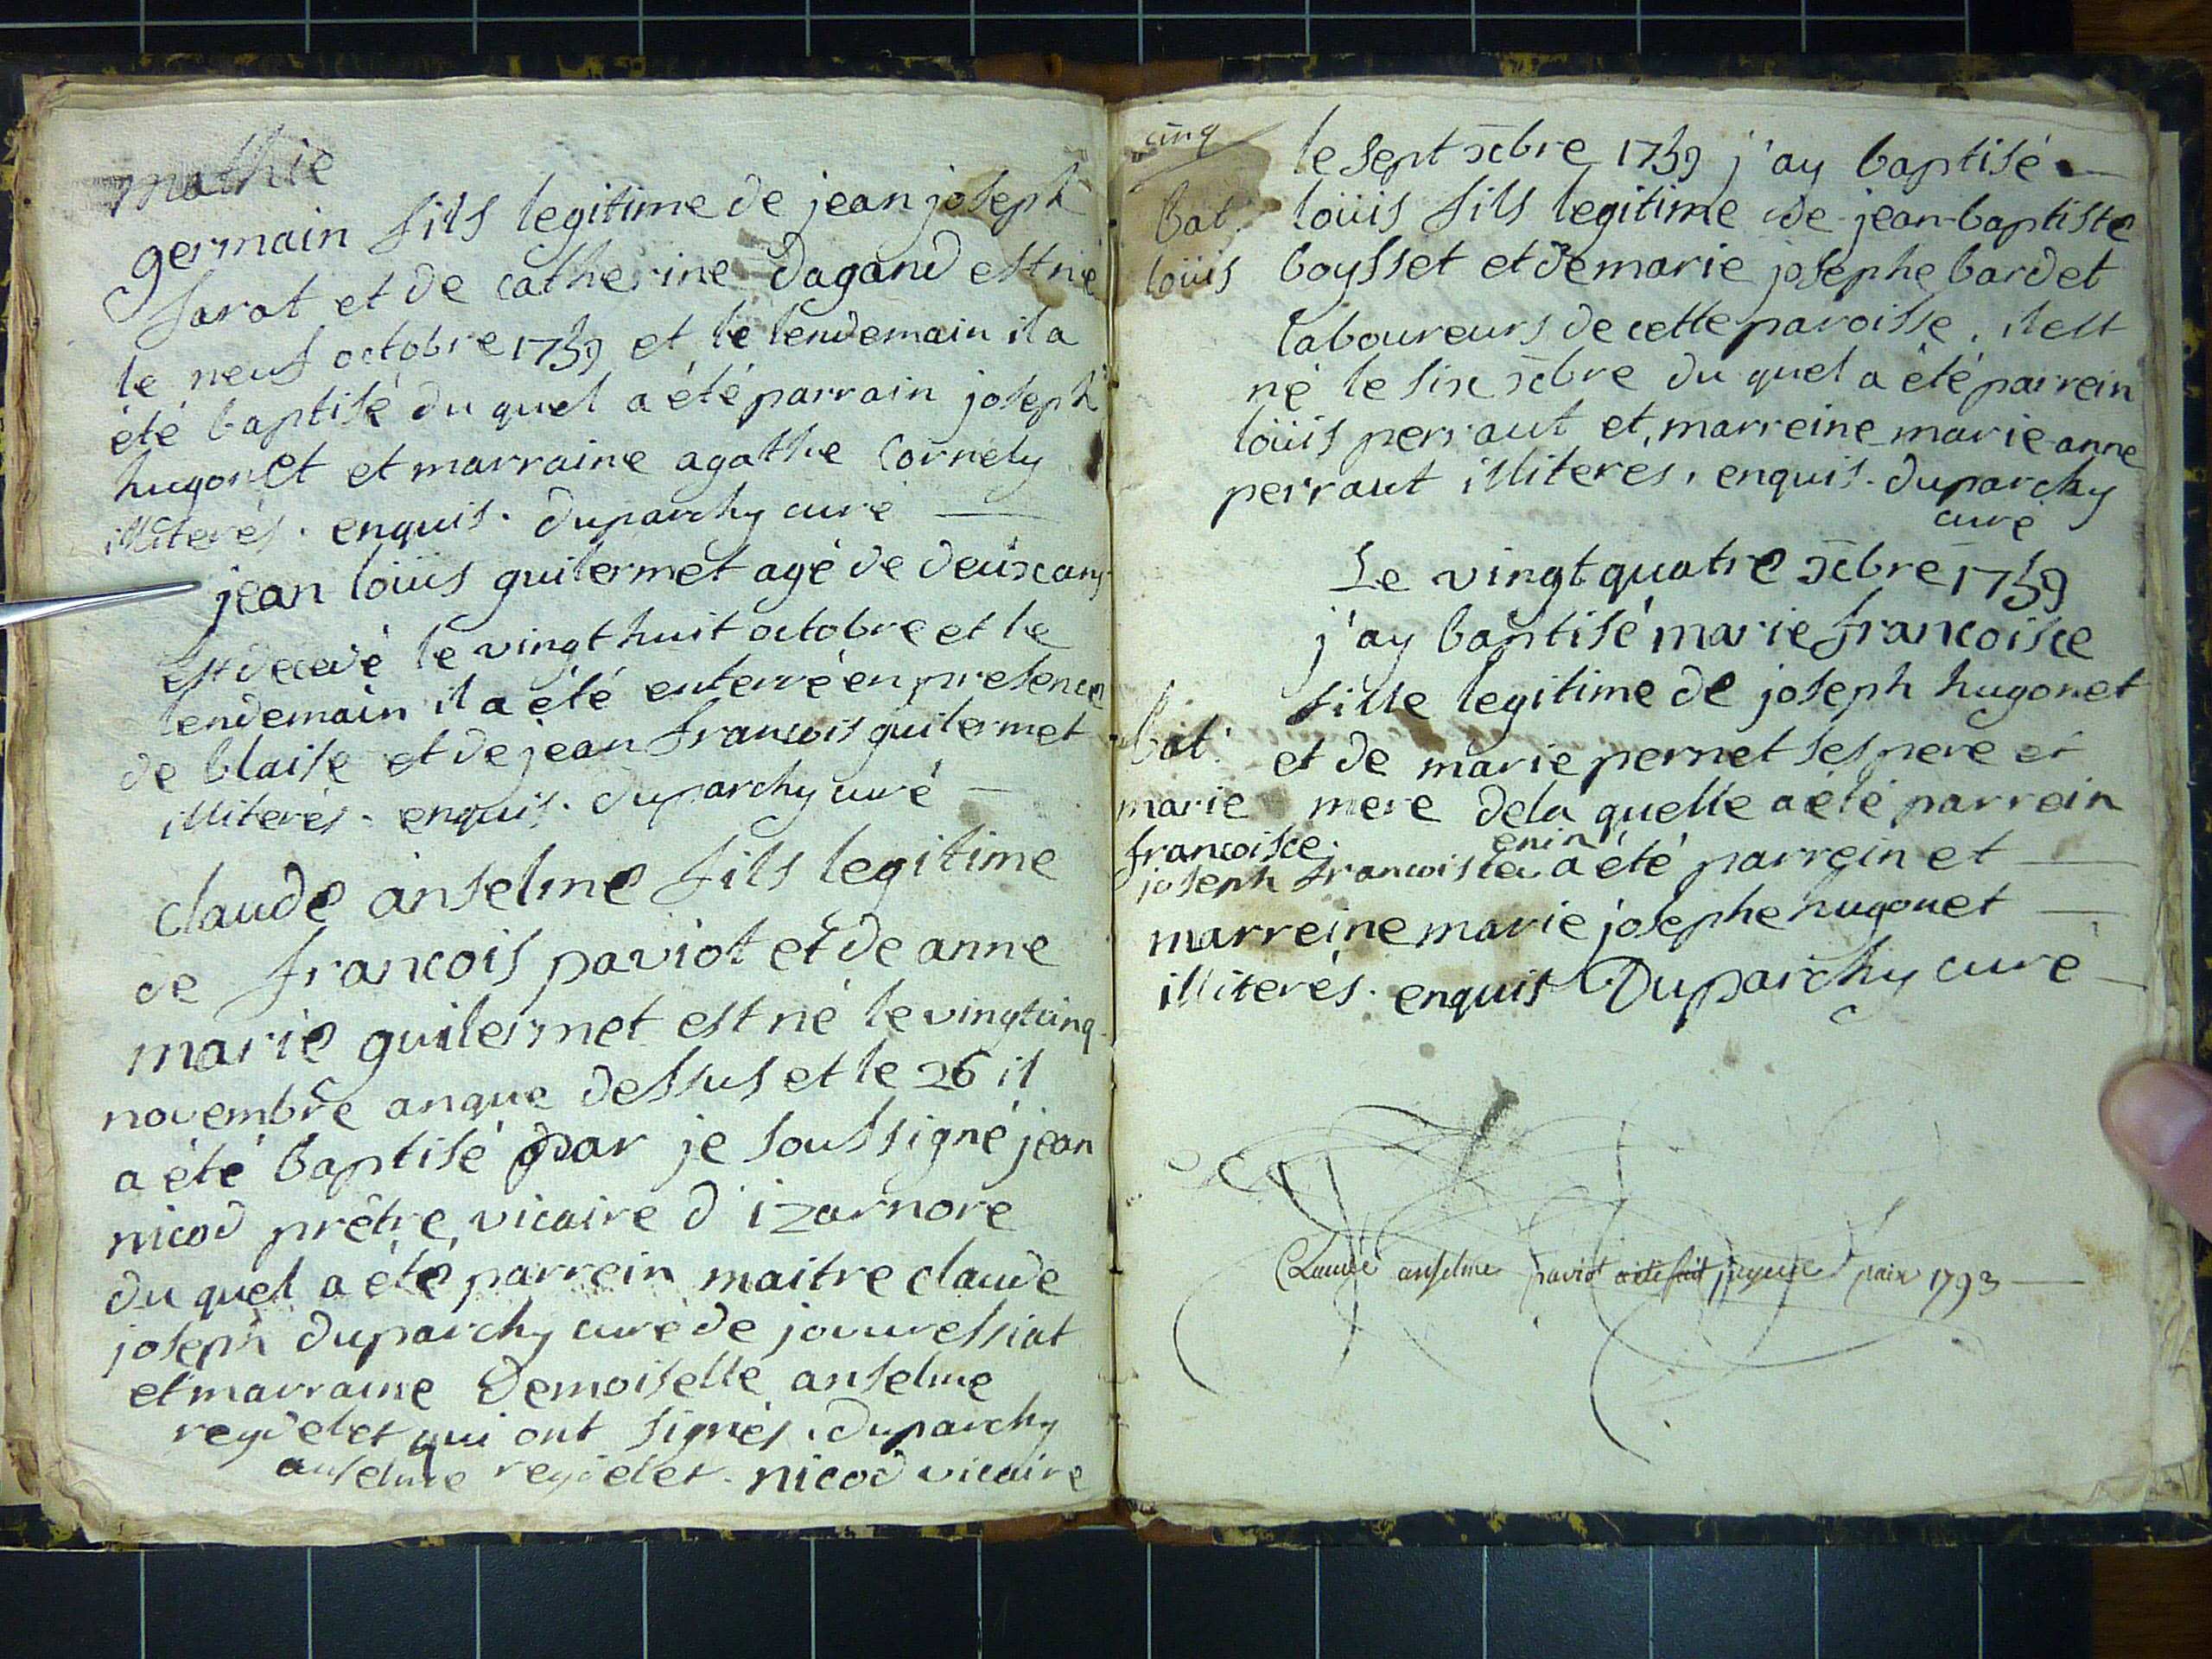 mathie
germain fils legitime de jean joseph
farat et de catherine dagand est né
le neuf octobre 1759 et le lendemain il a
été baptisé du quel a été parrain joseph
hugonet et marraine agathe Cornely
illiterés. enquis. duparchy curé
jean loüis guilermet agé de deux ans
est decedé le vingt huit octobre et le
lendemain il a été enterré en presence
de blaise et de jean francois guilermet
illiterés. enquis. duparchy curé
claude anselme fils legitime
de francois paviot et de anne
marie guilermet est né le vingt cinq
novembre an que dessus et le 26 il
a été baptisé par je soussigné jean
nicod prêtre vicaire d'izarnore
du quel a été parrein maitre claude
joseph duparchy curé de
et marraine Demoiselle anselme
reydelet qui ont signés. duparchy
anselme reydelet. nicod vicaire
cinq
le sept xbre 1759 j'ay baptisé
bat. loüis fils legitime de jean-baptiste
loüis boysset et de marie josephe bardet
laboureurs de cette paroisse. il est
né le six xbre du quel a été parrein
loüis perraut et, marreine marie-anne
perraut illiterés. enquis. duparchy
curé
Le vingt quatre xbre 1759
j'ay baptisé marie francoisce
fille legitime de joseph hugonet
bat. et de marie pernet ses pere et
marie mere de la quelle a été parrein
francoisce.
joseph francois a été parrein et
marreine marie josephe hugonet
illiterés. enquis Duparchy curé
Claude anselme paviot a été fait juge de paix 1793